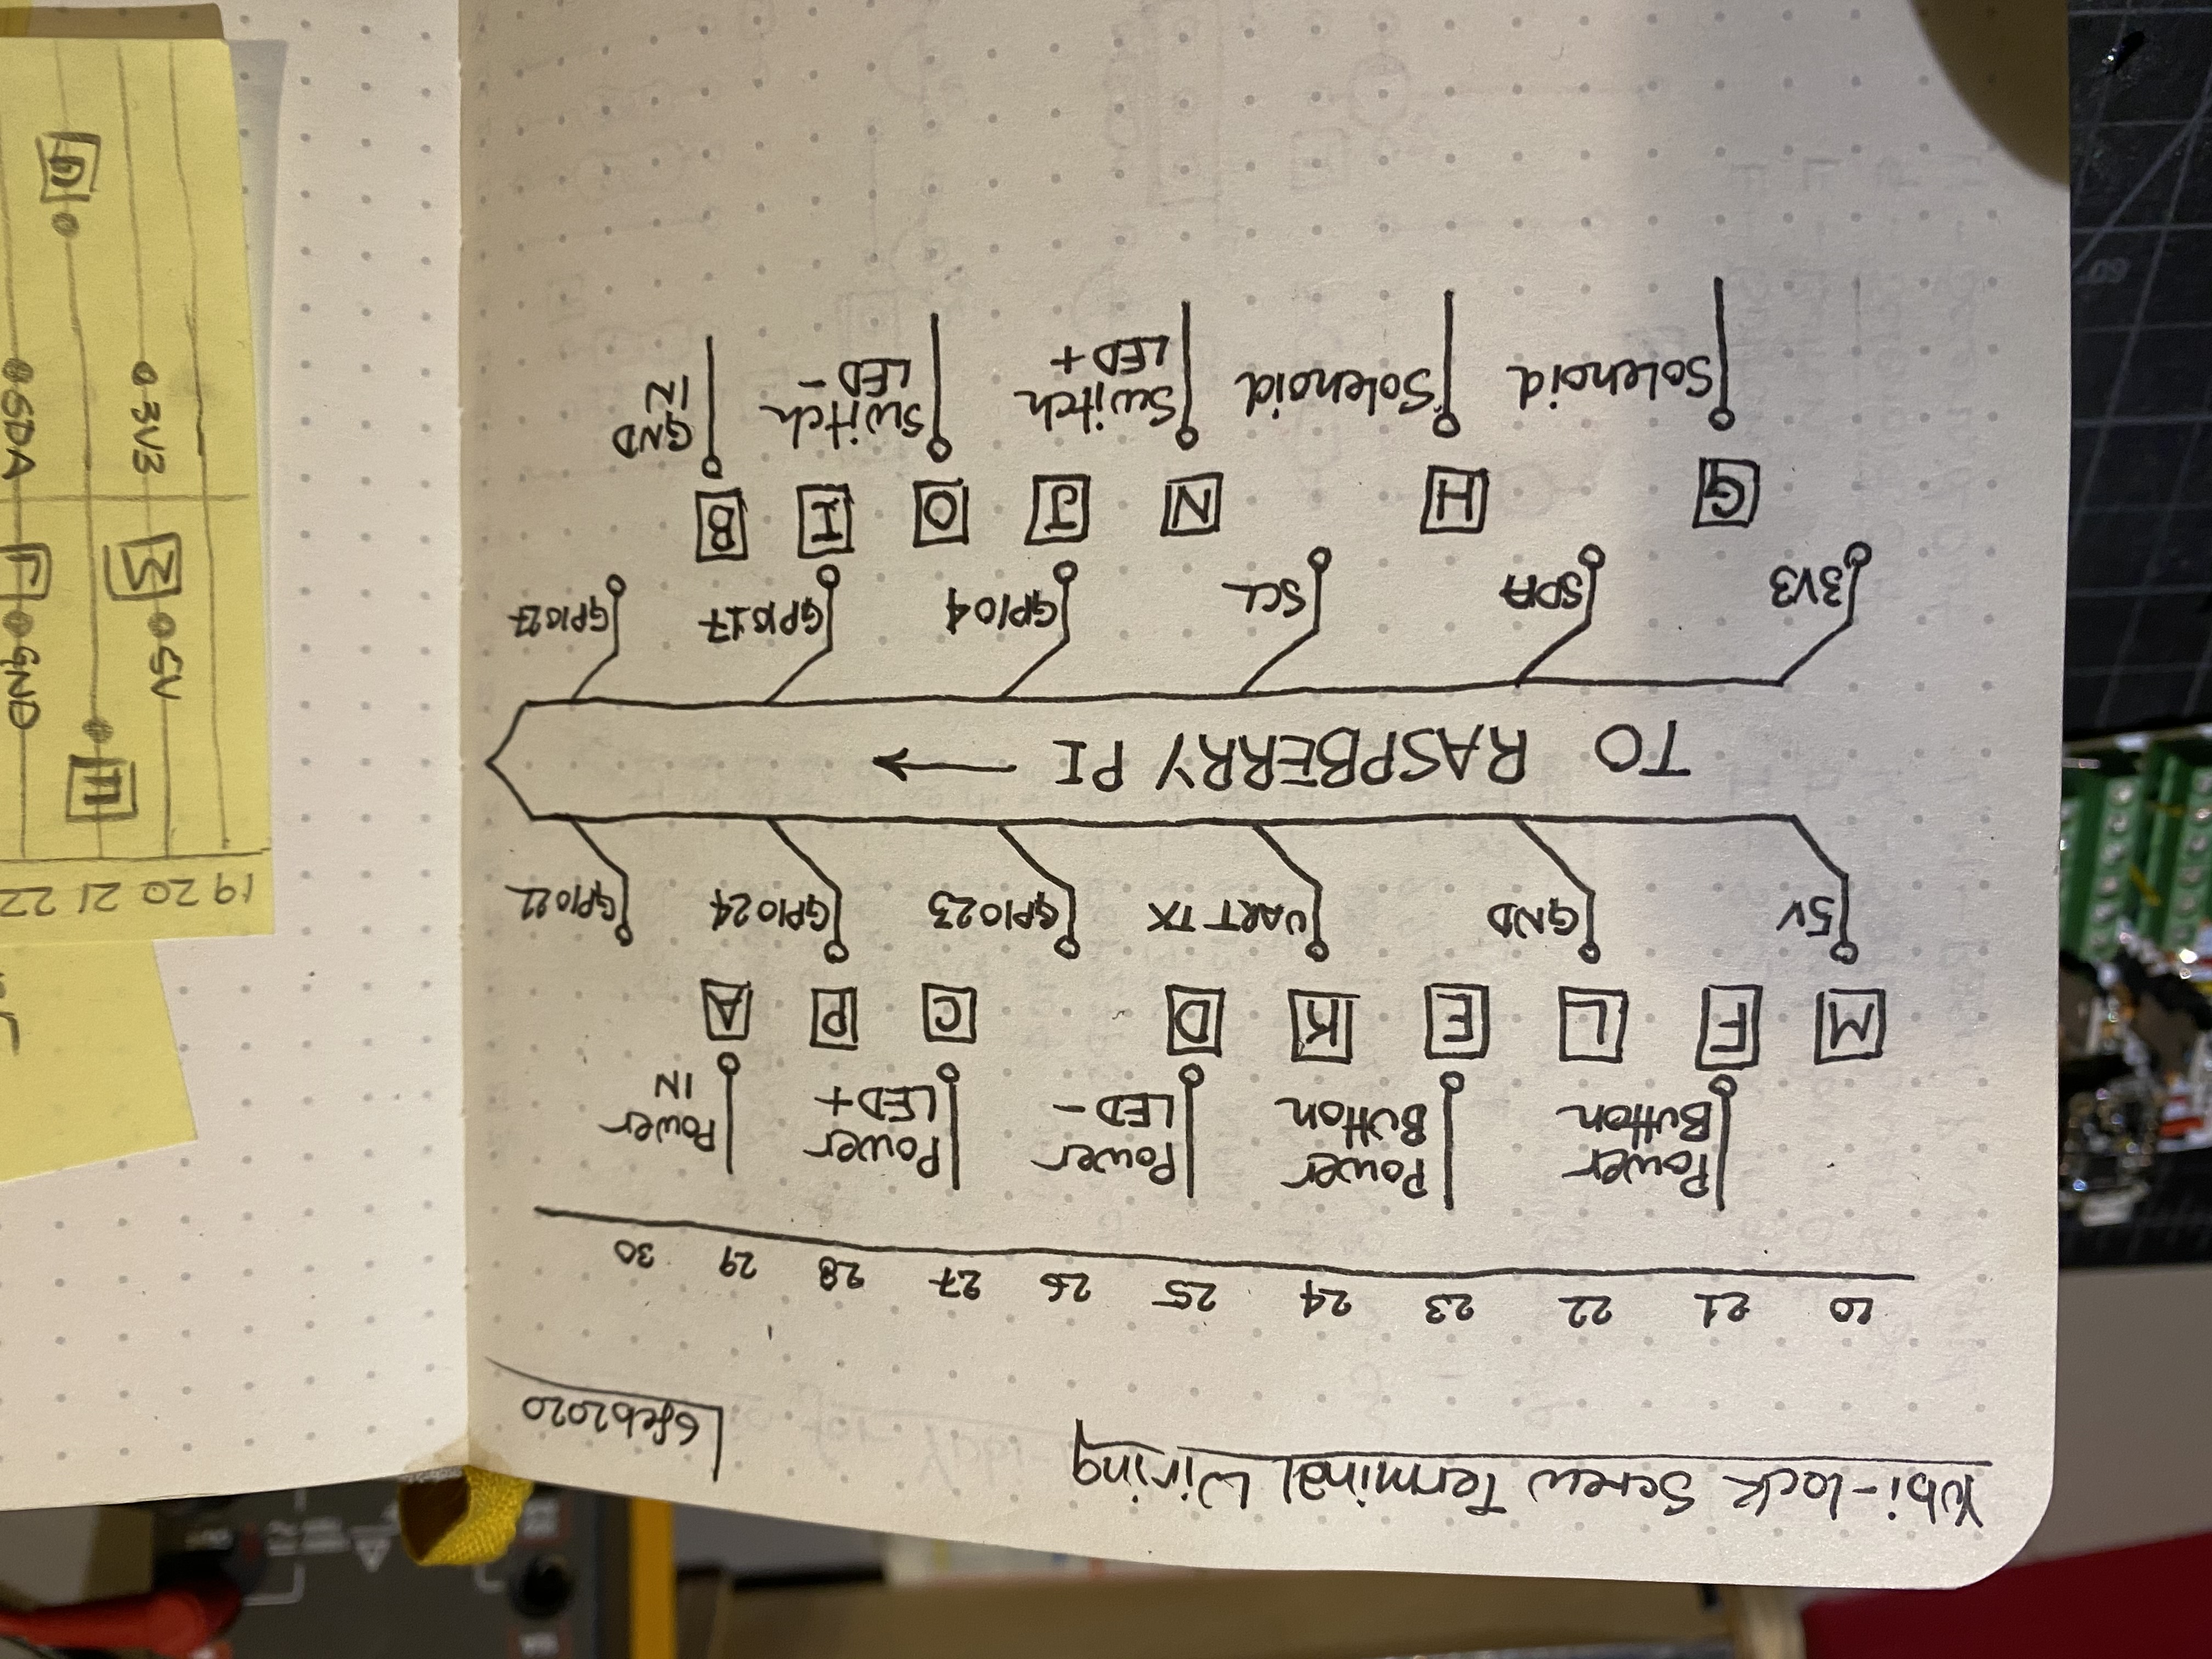 Yubi-lock Screw Terminal Wiring
6feb2020
20 21 22 23 24 25 26 27 28 29 30
Power Button
Power Button
Power LED -
Power LED +
Power IN
M F L E K D C P A
5V GND UART TX GPIO23 GPIO24 GPIO22
TO RASPBERRY PI →
3V3 SDA SCL GPIO4 GPIO17 GPIO27
G H N J O I B
Solenoid
Solenoid
Switch LED +
Switch LED -
GND IN
19 20 21 22
E
5V
GND
M
L
3V3
SDA
G